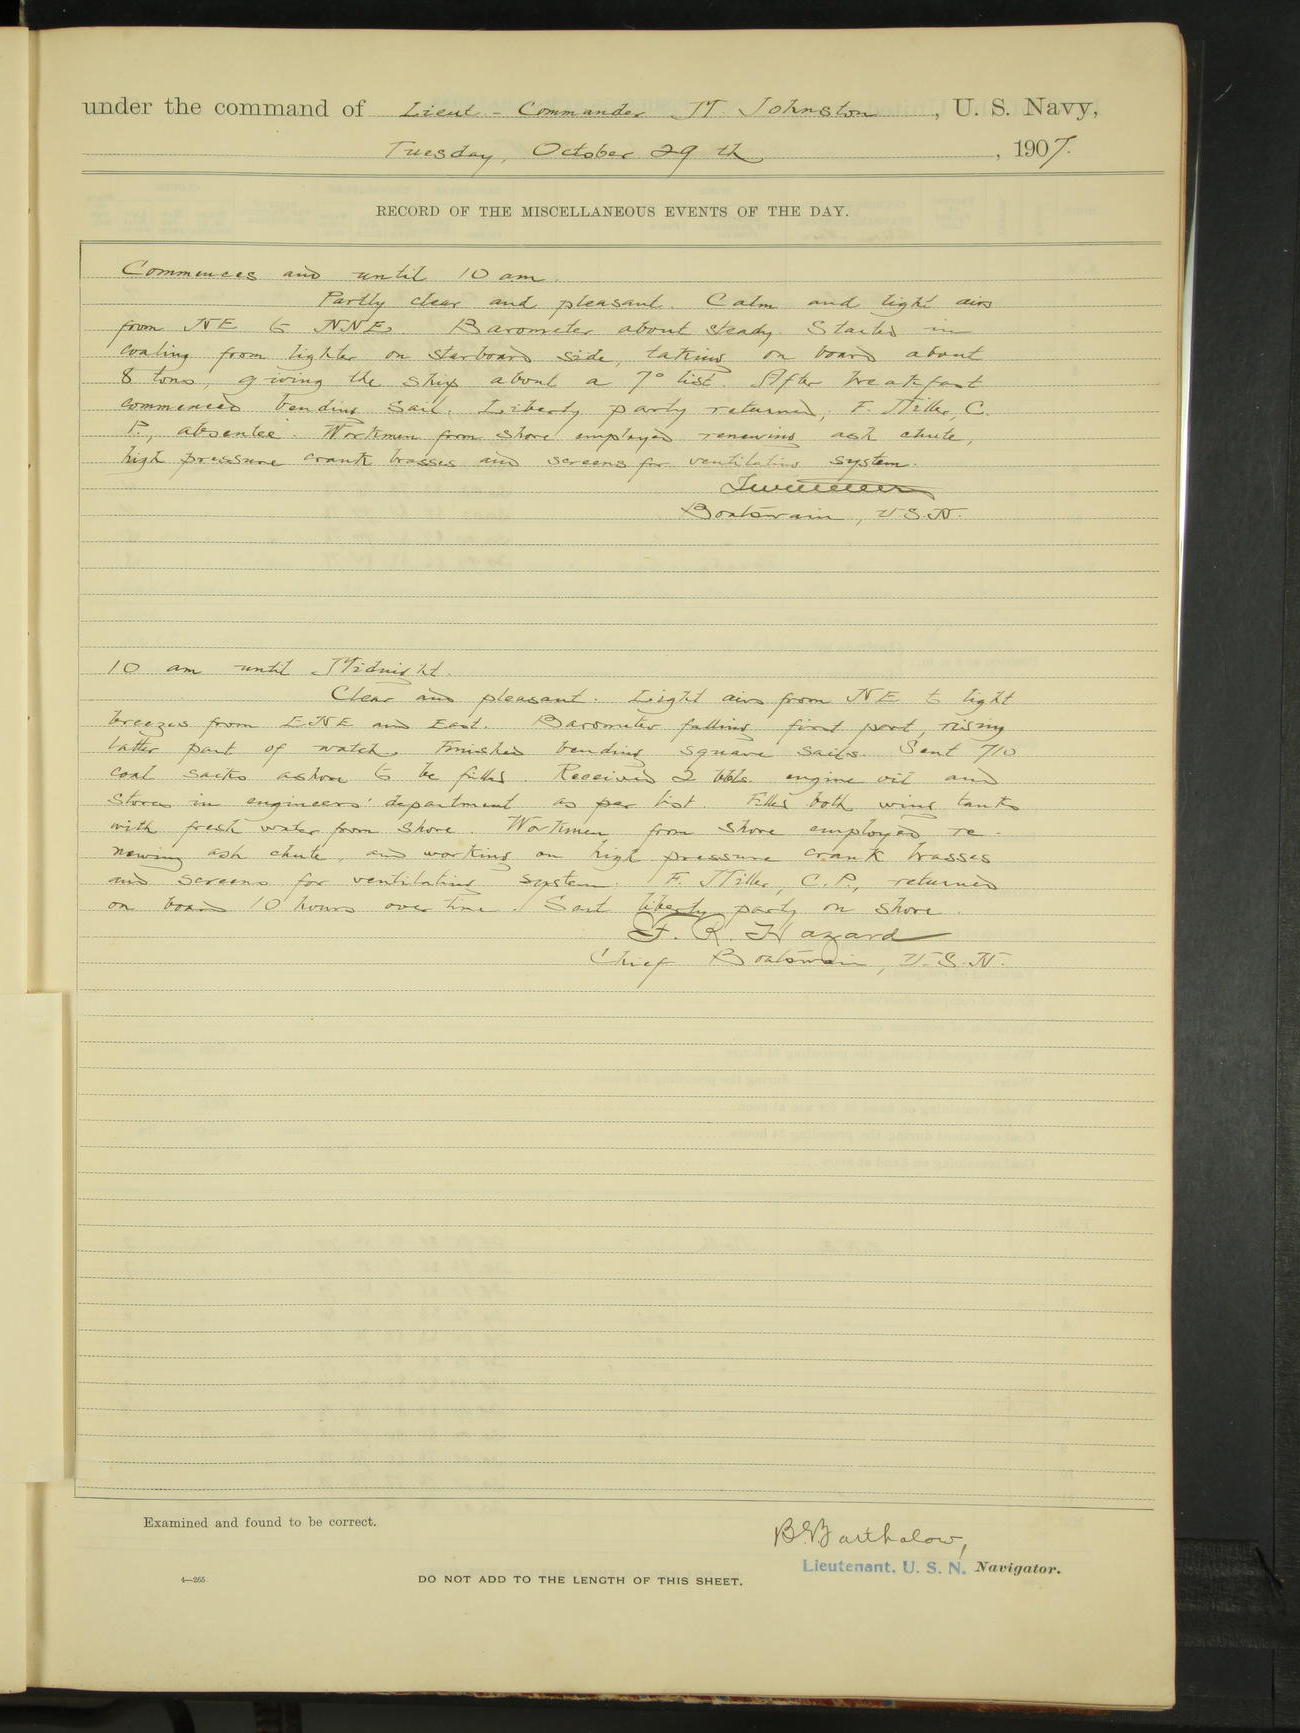 under the command of Lieut-Commander M Johnston, U. S. Navy,
Tuesday, October 29th, 1907.
RECORD OF THE MISCELLANEOUS EVENTS OF THE DAY.
Commences and until 10 am.
Partly clear and pleasant. Calm and light airs
from NE to NNE. Barometer about steady. Started in
coaling from lighter on starboard side, taking on board about
8 tons, giving the ship about a 7° list. After breakfast
commenced bending sail. Liberty party returned, F. Miller, C.
P., absentee. Workmen from shore employed renewing ash chute,
high pressure crank brasses and screens for ventilating system.
Boatswain, U.S.N.
10 am until Midnight.
Clear and pleasant. Light airs from NE to light
breezes from ENE and East. Barometer falling first part, rising
latter part of watch. Finished bending square sails. Sent 710
coal sacks ashore to be filled. Received 2 bbls. engine oil and
stores in engineers' department as per list. Filled both wing tanks
with fresh water from shore. Workmen from shore employed re-
newing ash chute, and working on high pressure crank brasses
and screens for ventilating system. F. Miller, C.P., returned
on board 10 hours over time. Sent liberty party on shore.
F. R. Hazard
Chief Boatswain, U.S.N.
Examined and found to be correct.
B. Barthalow,
Lieutenant. U. S. N. Navigator.
4—265
DO NOT ADD TO THE LENGTH OF THIS SHEET.